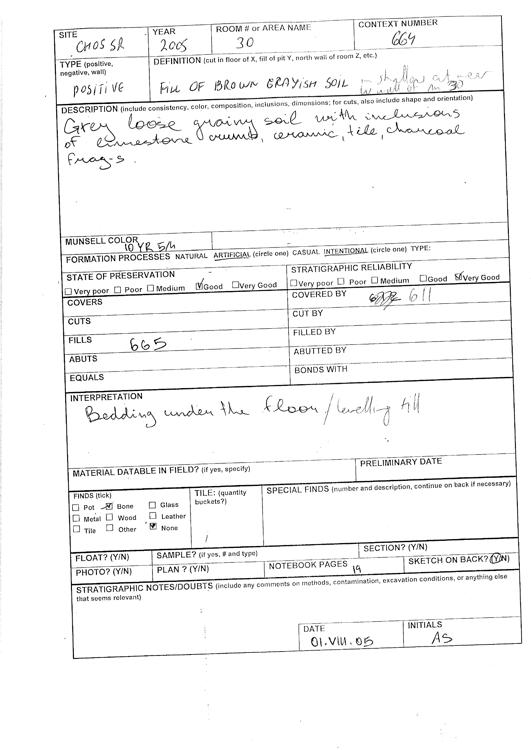 SITE CHOSSR YEAR 2005 ROOM # or AREA NAME 30 CONTEXT NUMBER 664
TYPE (positive, negative, wall) POSITIVE
DEFINITION (cut in floor of X, fill of pit Y, north wall of room Z, etc.)
FILL OF BROWN GRAYISH SOIL in shallow cut near W wall of rm 30
DESCRIPTION (include consistency, color, composition, inclusions, dimensions; for cuts, also include shape and orientation)
Grey loose grainy soil with inclusions
of limestone crumb, ceramic, tile, charcoal
frag-s.
MUNSELL COLOR 10 YR 5/1
FORMATION PROCESSES NATURAL ARTIFICIAL (circle one) CASUAL INTENTIONAL (circle one) TYPE:
STATE OF PRESERVATION
☐ Very poor ☐ Poor ☐ Medium ☑ Good ☐ Very Good
STRATIGRAPHIC RELIABILITY
☐ Very poor ☐ Poor ☐ Medium ☐ Good ☑ Very Good
COVERS
COVERED BY 611
CUTS
CUT BY
FILLS 665
FILLED BY
ABUTS
ABUTTED BY
EQUALS
BONDS WITH
INTERPRETATION
Bedding under the floor / levelling fill
MATERIAL DATABLE IN FIELD? (if yes, specify)
PRELIMINARY DATE
FINDS (tick)
☐ Pot ☑ Bone ☐ Glass
☐ Metal ☐ Wood ☐ Leather
☐ Tile ☐ Other ☑ None
TILE: (quantity buckets?)
/
SPECIAL FINDS (number and description, continue on back if necessary)
FLOAT? (Y/N) SAMPLE? (if yes, # and type) SECTION? (Y/N)
PHOTO? (Y/N) PLAN ? (Y/N) NOTEBOOK PAGES 19 SKETCH ON BACK? (Y/N)
STRATIGRAPHIC NOTES/DOUBTS (include any comments on methods, contamination, excavation conditions, or anything else
that seems relevant)
DATE 01.VIII.05
INITIALS AS